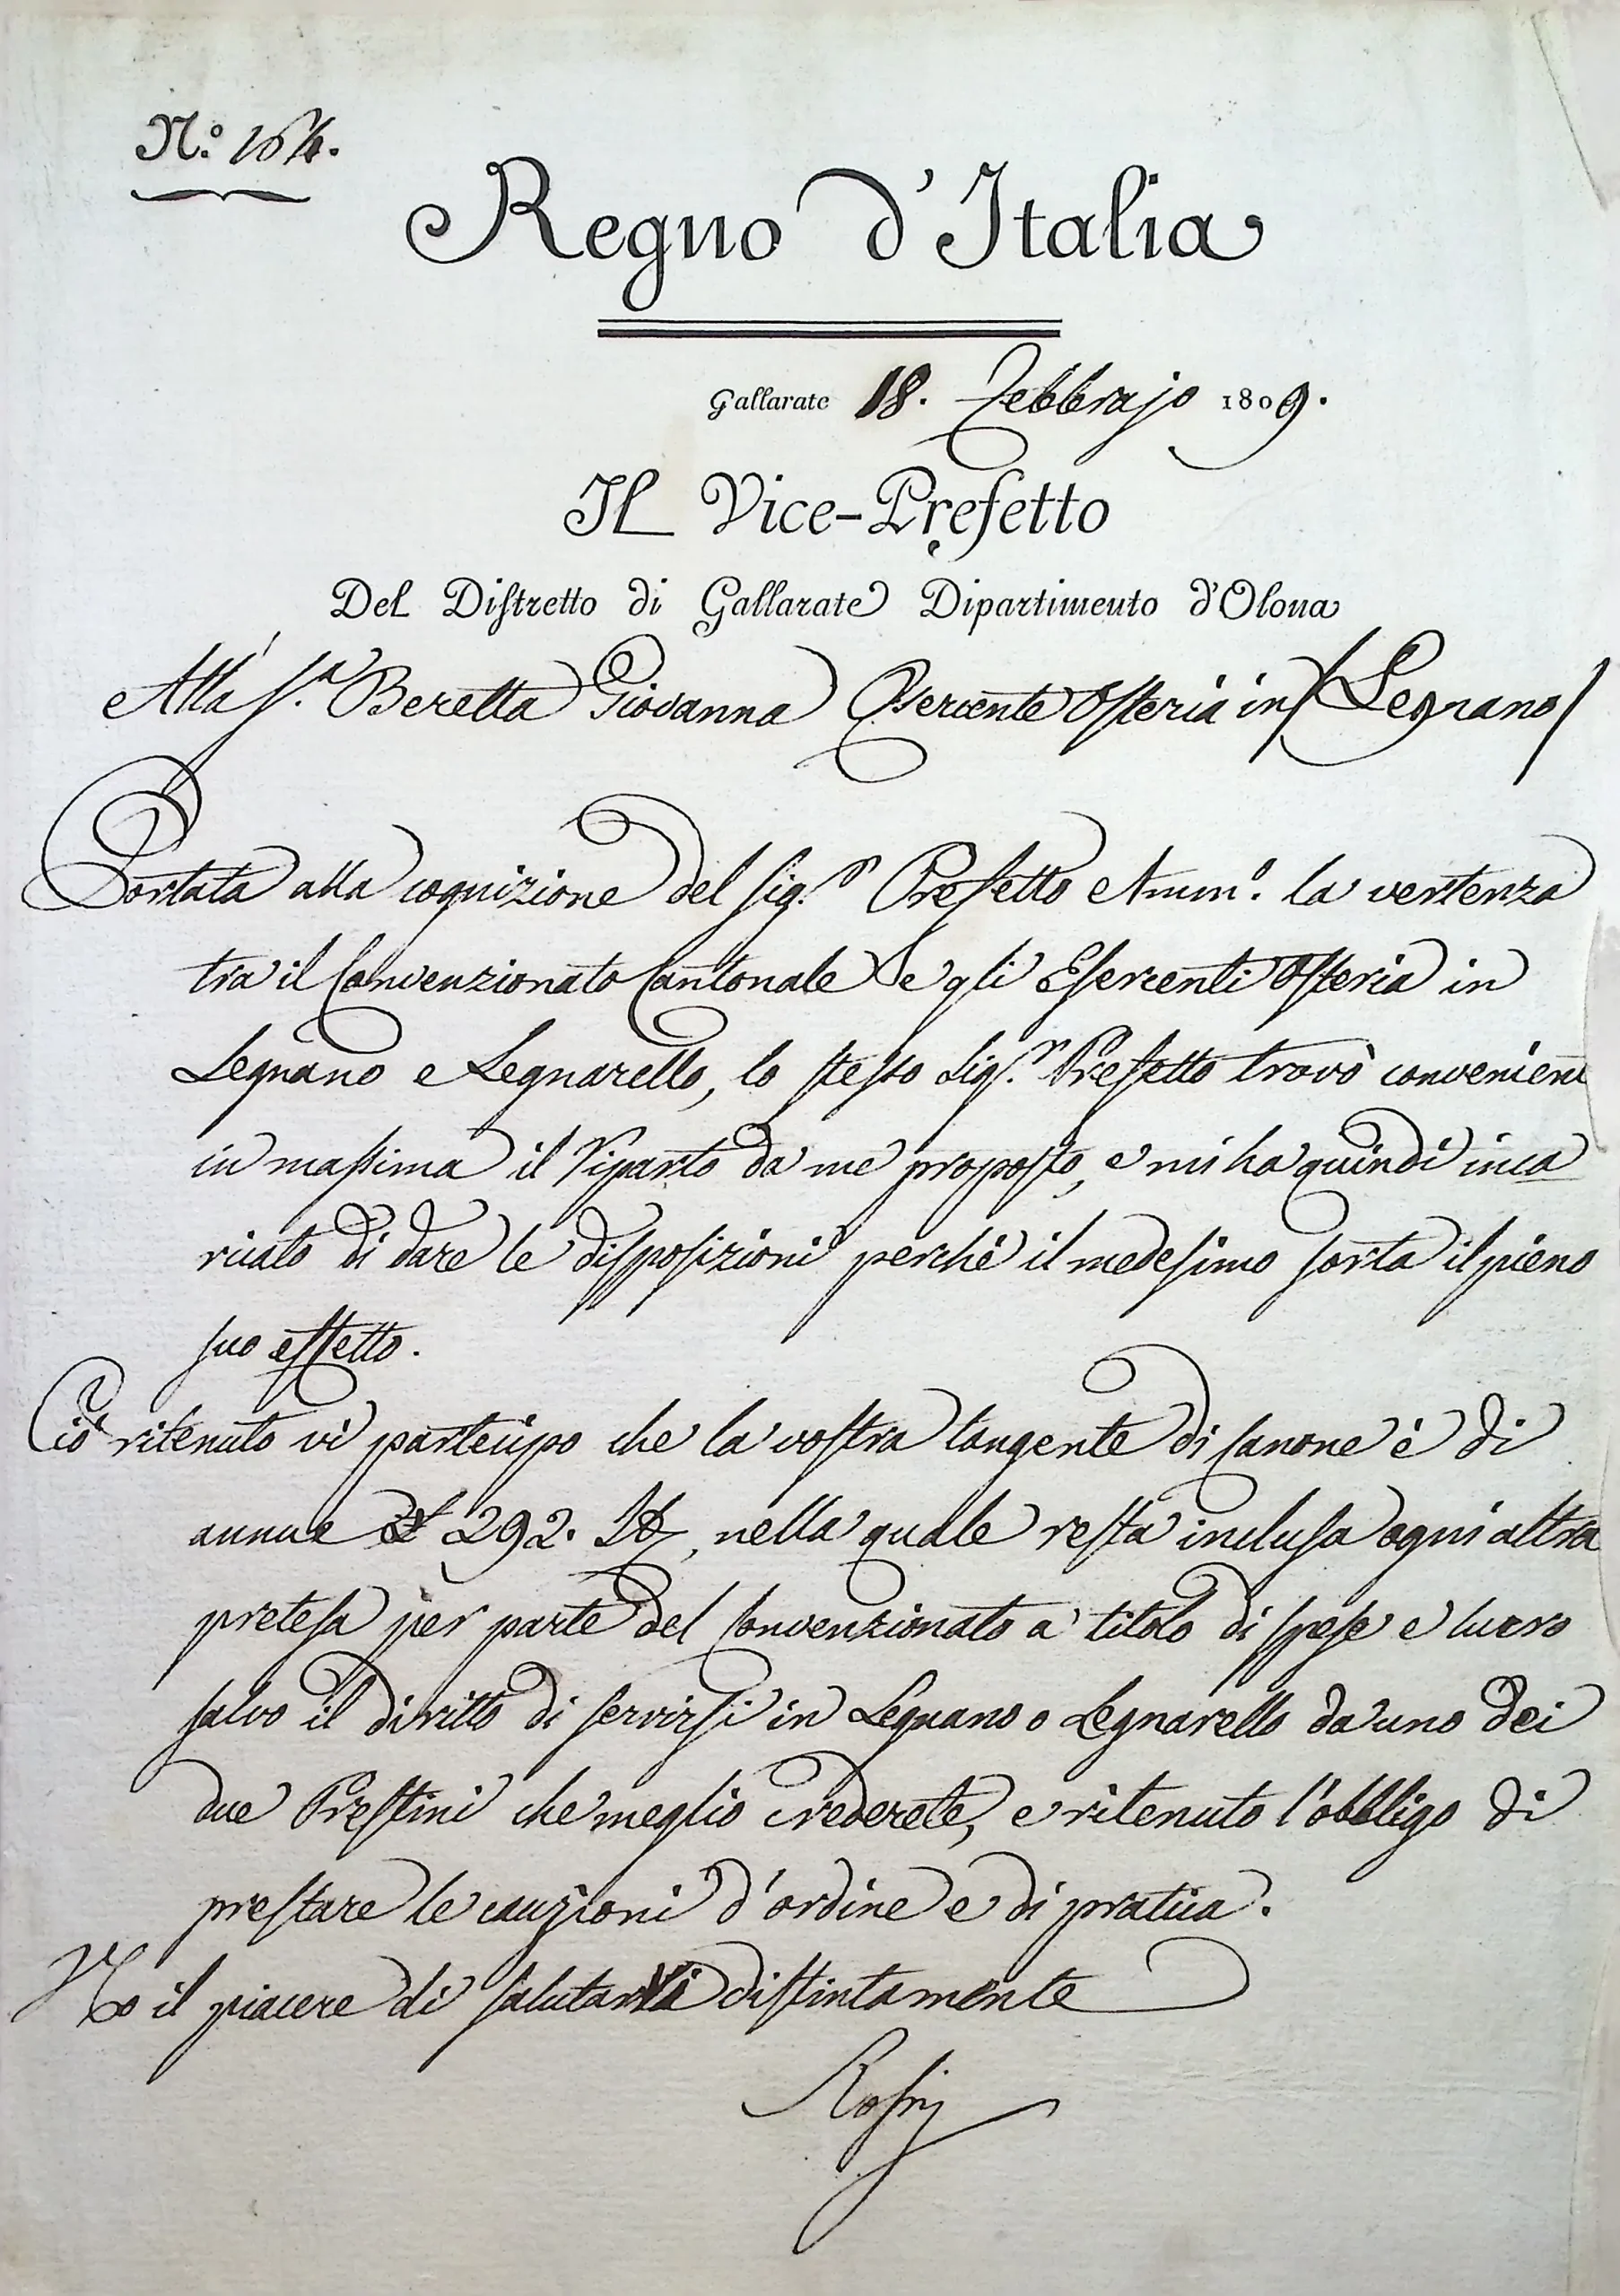 N.º 164.
Regno d'Italia
Gallarate 18. Febbrajo 1809.
Il Vice-Prefetto
Del Distretto di Gallarate Dipartimento d'Olona
Alla S.ª Beretta Giovanna Esercente Osteria in Legnano
Portata alla cognizione del Sig.r Prefetto Amm.º la vertenza
tra il Convenzionato Cantonale e gli Esercenti Osteria in
Legnano e Legnarello, lo stesso Sig.r Prefetto trovò convenien
in massima il Riparto da me proposto, e mi ha quindi inca
ricato di dare le disposizioni perchè il medesimo sorta il pieno
suo effetto.
Ciò ritenuto vi partecipo che la vostra tangente di Canone è di
annue 292. nella quale resta inclusa ogni altra
pretesa per parte del Convenzionato a titolo di spese e lucro
salvo il diritto di servirsi in Legnano o Legnarello da uno dei
due Prestini che meglio crederete, e ritenuto l'obbligo di
prestare le cauzioni d'ordine e di pratica.
Ho il piacere di salutarvi distintamente